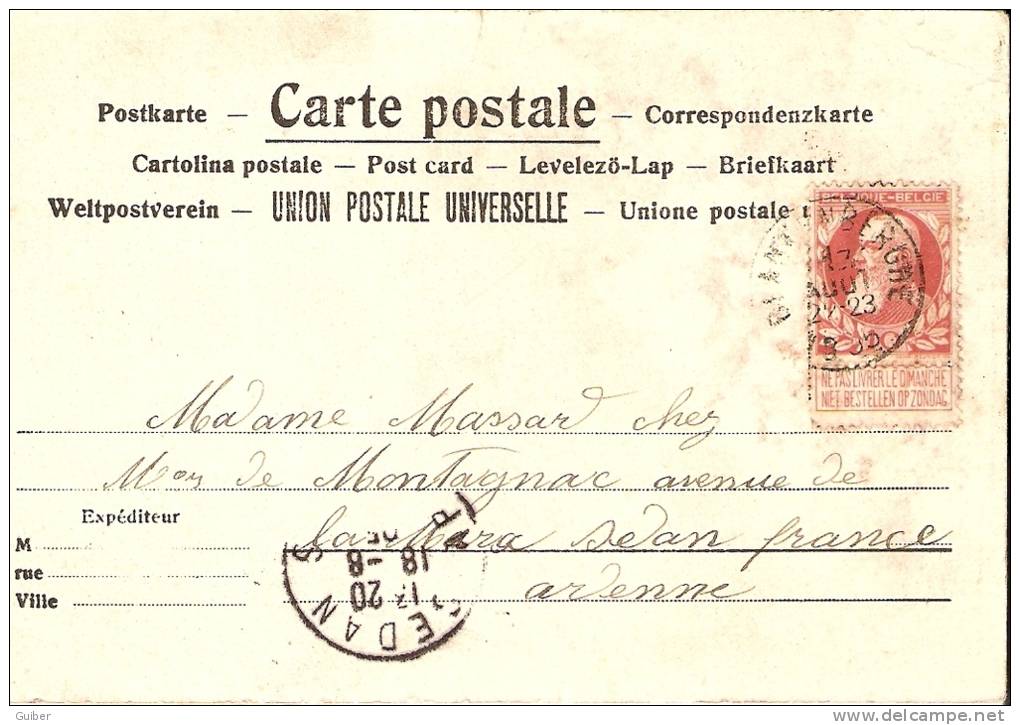 Postkarte — Carte postale — Correspondenzkarte
Cartolina postale — Post card — Levelezö-Lap — Briefkaart
Weltpostverein — UNION POSTALE UNIVERSELLE — Unione postale
BELGIQUE-BELGIE
BLANKENBERGHE
AOUT
22-23
NE PAS LIVRER LE DIMANCHE
NIET BESTELLEN OP ZONDAG
Madame Massard chez
Mon de Montagnac avenue de
Expéditeur
la Sedan france
M
rue
Ville
ardenne
SEDAN
20
18 -8
Guiber
www.delcampe.net